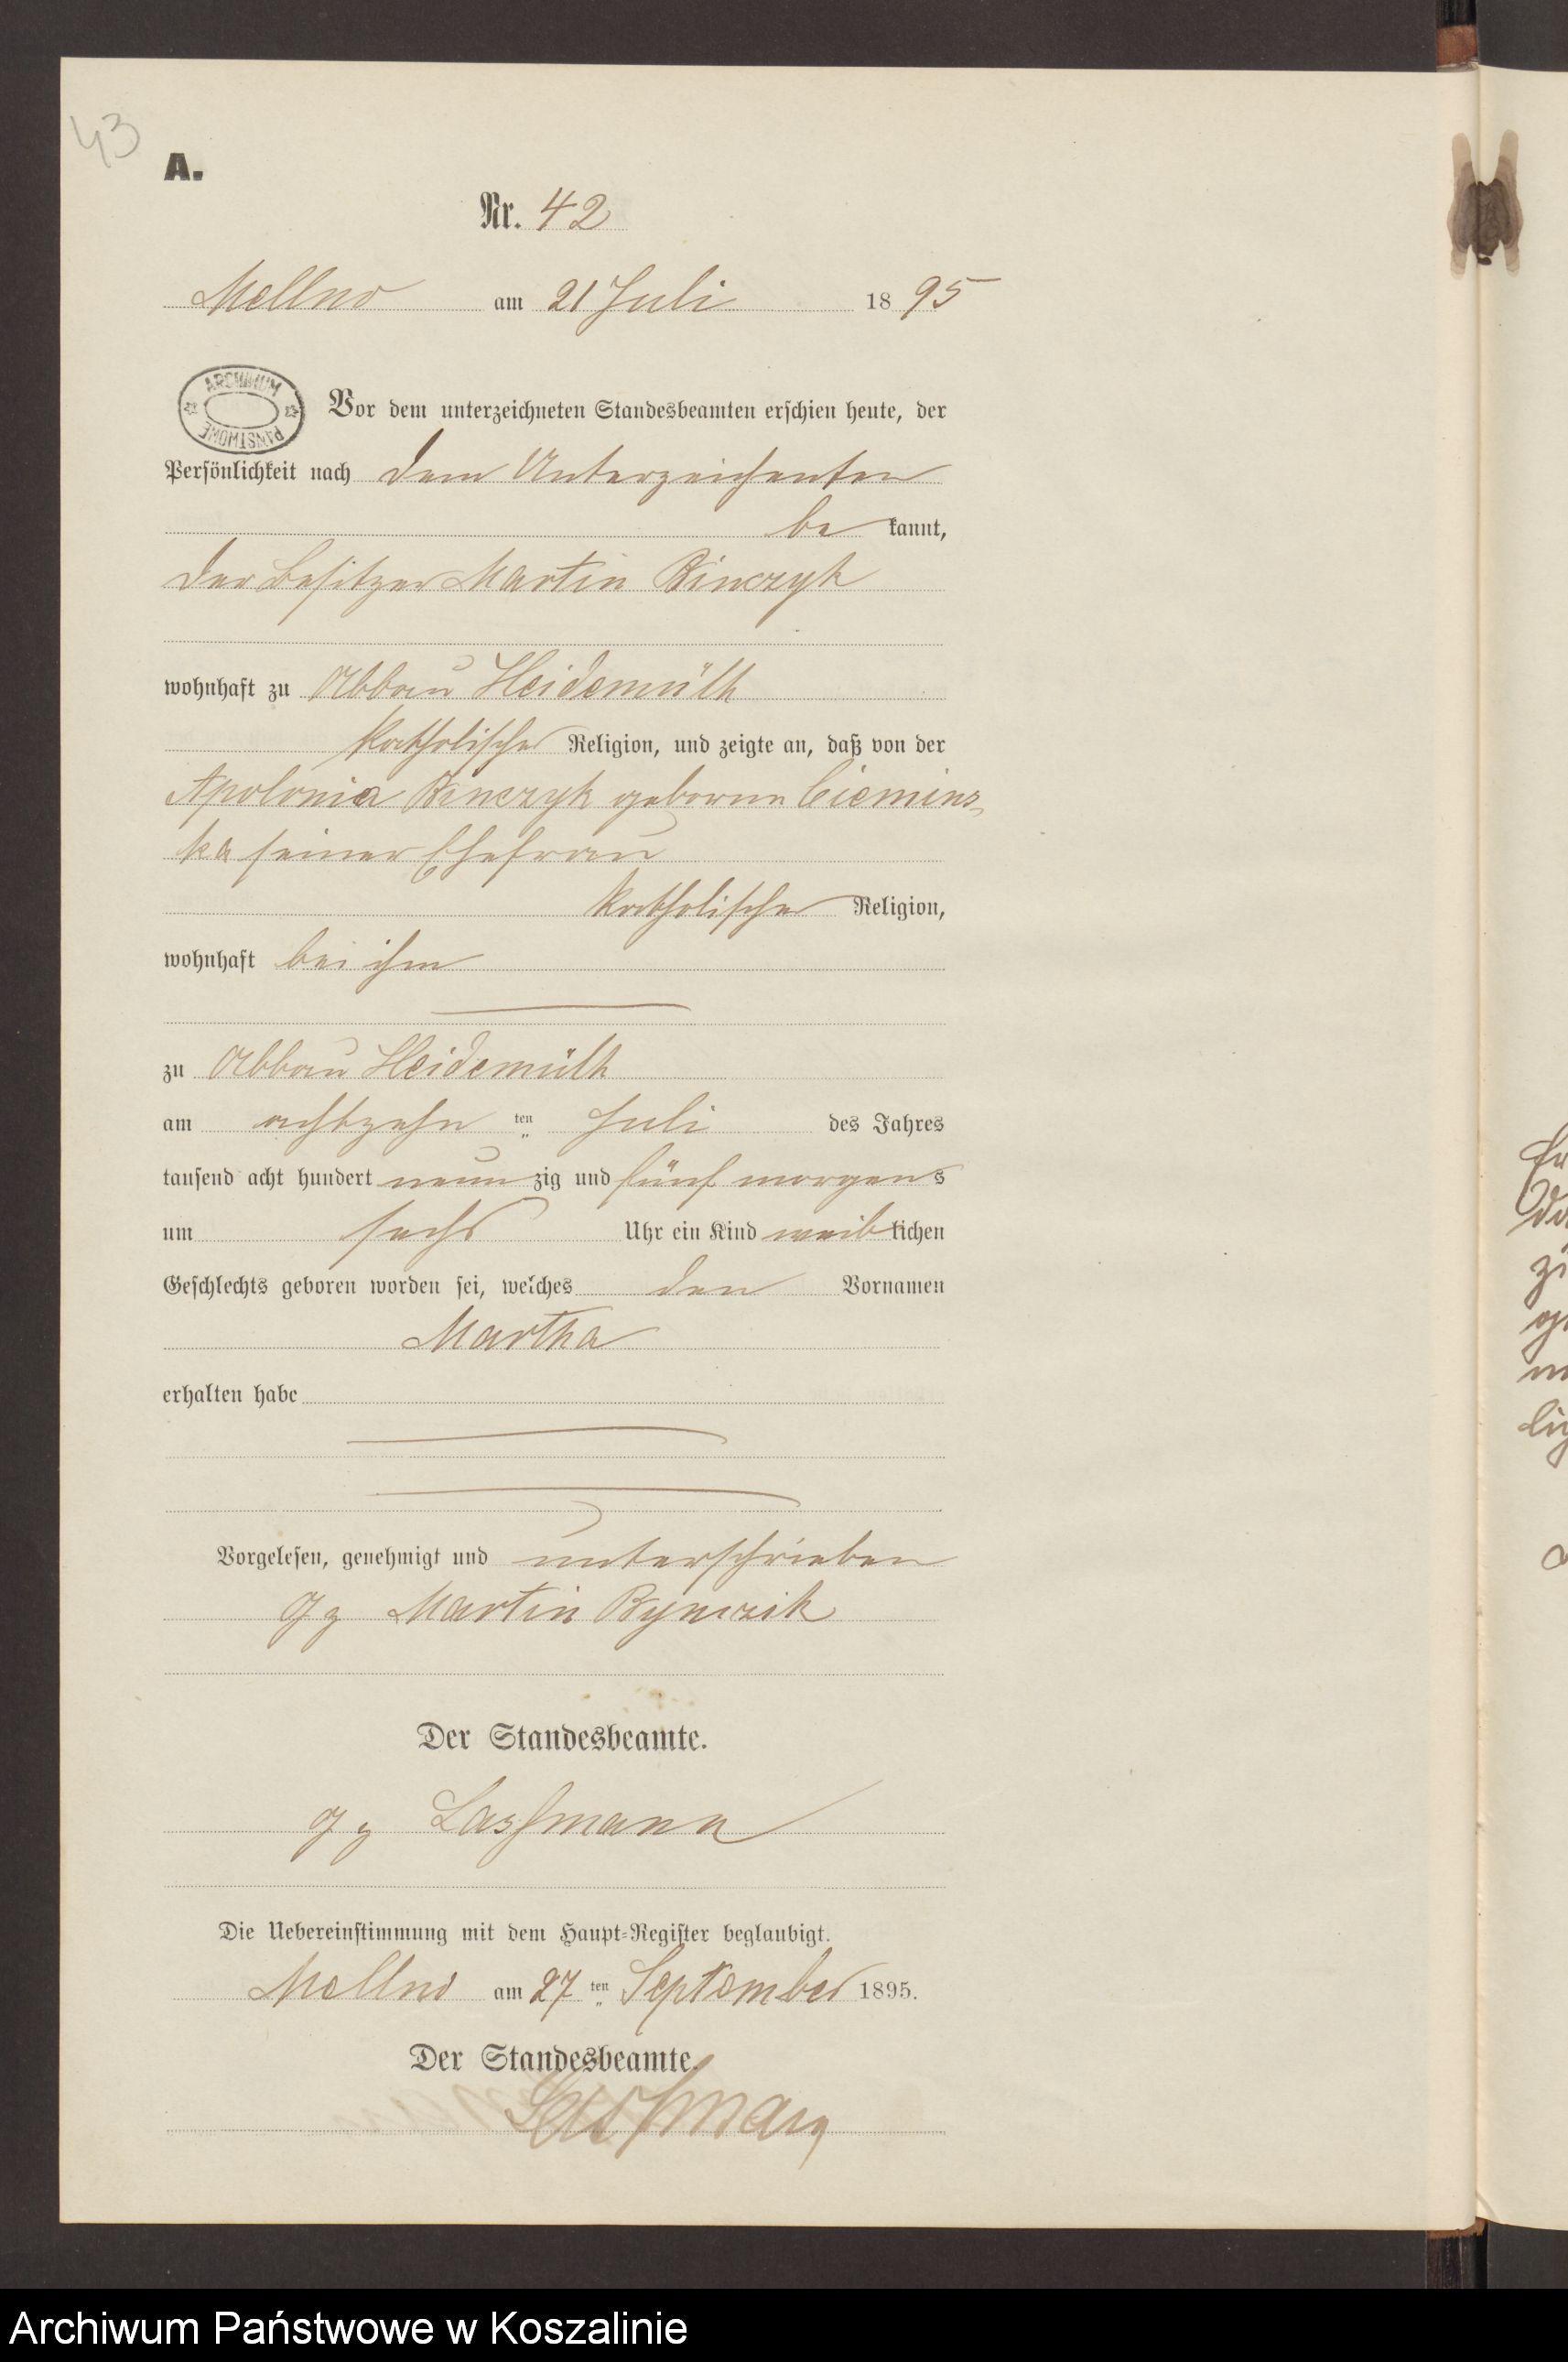 43
A.
Nr. 42
Mellno am 21 Juli 1895
ARCHIWUM PAŃSTWOWE
Vor dem unterzeichneten Standesbeamten erschien heute, der
Persönlichkeit nach dem Unterzeichneten
bekannt,
der Besitzer Martin Binczyk
wohnhaft zu Abbau Heidemühl
katholischer Religion, und zeigte an, daß von der
Apolonia Binczyk geborene Ciemins-
ka seiner Ehefrau
katholischer Religion,
wohnhaft bei ihm
zu Abbau Heidemühl
am achtzehnten Juli des Jahres
tausend acht hundert neunzig und fünf morgens
um sechs Uhr ein Kind weiblichen
Geschlechts geboren worden sei, welches den Vornamen
Martha
erhalten habe
Vorgelesen, genehmigt und unterschrieben
gz Martin Bynczik
Der Standesbeamte.
gz Lassmann
Die Uebereinstimmung mit dem Haupt-Register beglaubigt.
Mellno am 27ten September 1895.
Der Standesbeamte.
Lassmann
Archiwum Państwowe w Koszalinie